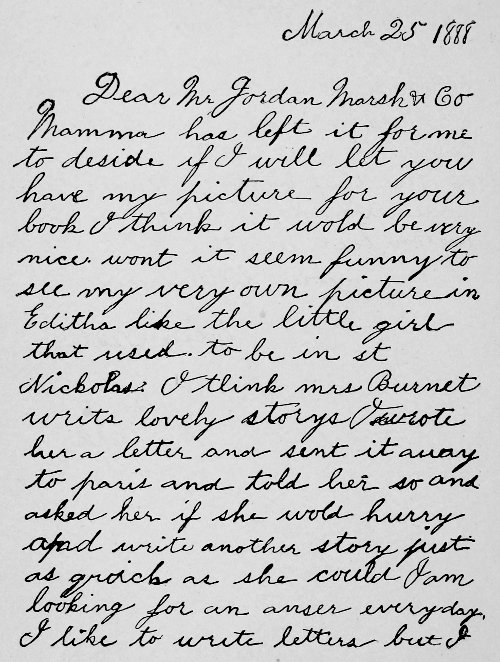 March 25 1888
Dear Mr Jordan Marsh & Co
Mamma has left it for me
to deside if I will let you
have my picture for your
book I think it wold be very
nice. wont it seem funny to
see my very own picture in
Editha like the little girl
that used. to be in st
Nickolas: I tlink mrs Burnet
writs lovely storys I wrote
her a letter and sent it away
to paris and told her so and
asked her if she wold hurry
and write another story just
as qroick as she could I am
looking for an anser everyday,
I like to write letters but I